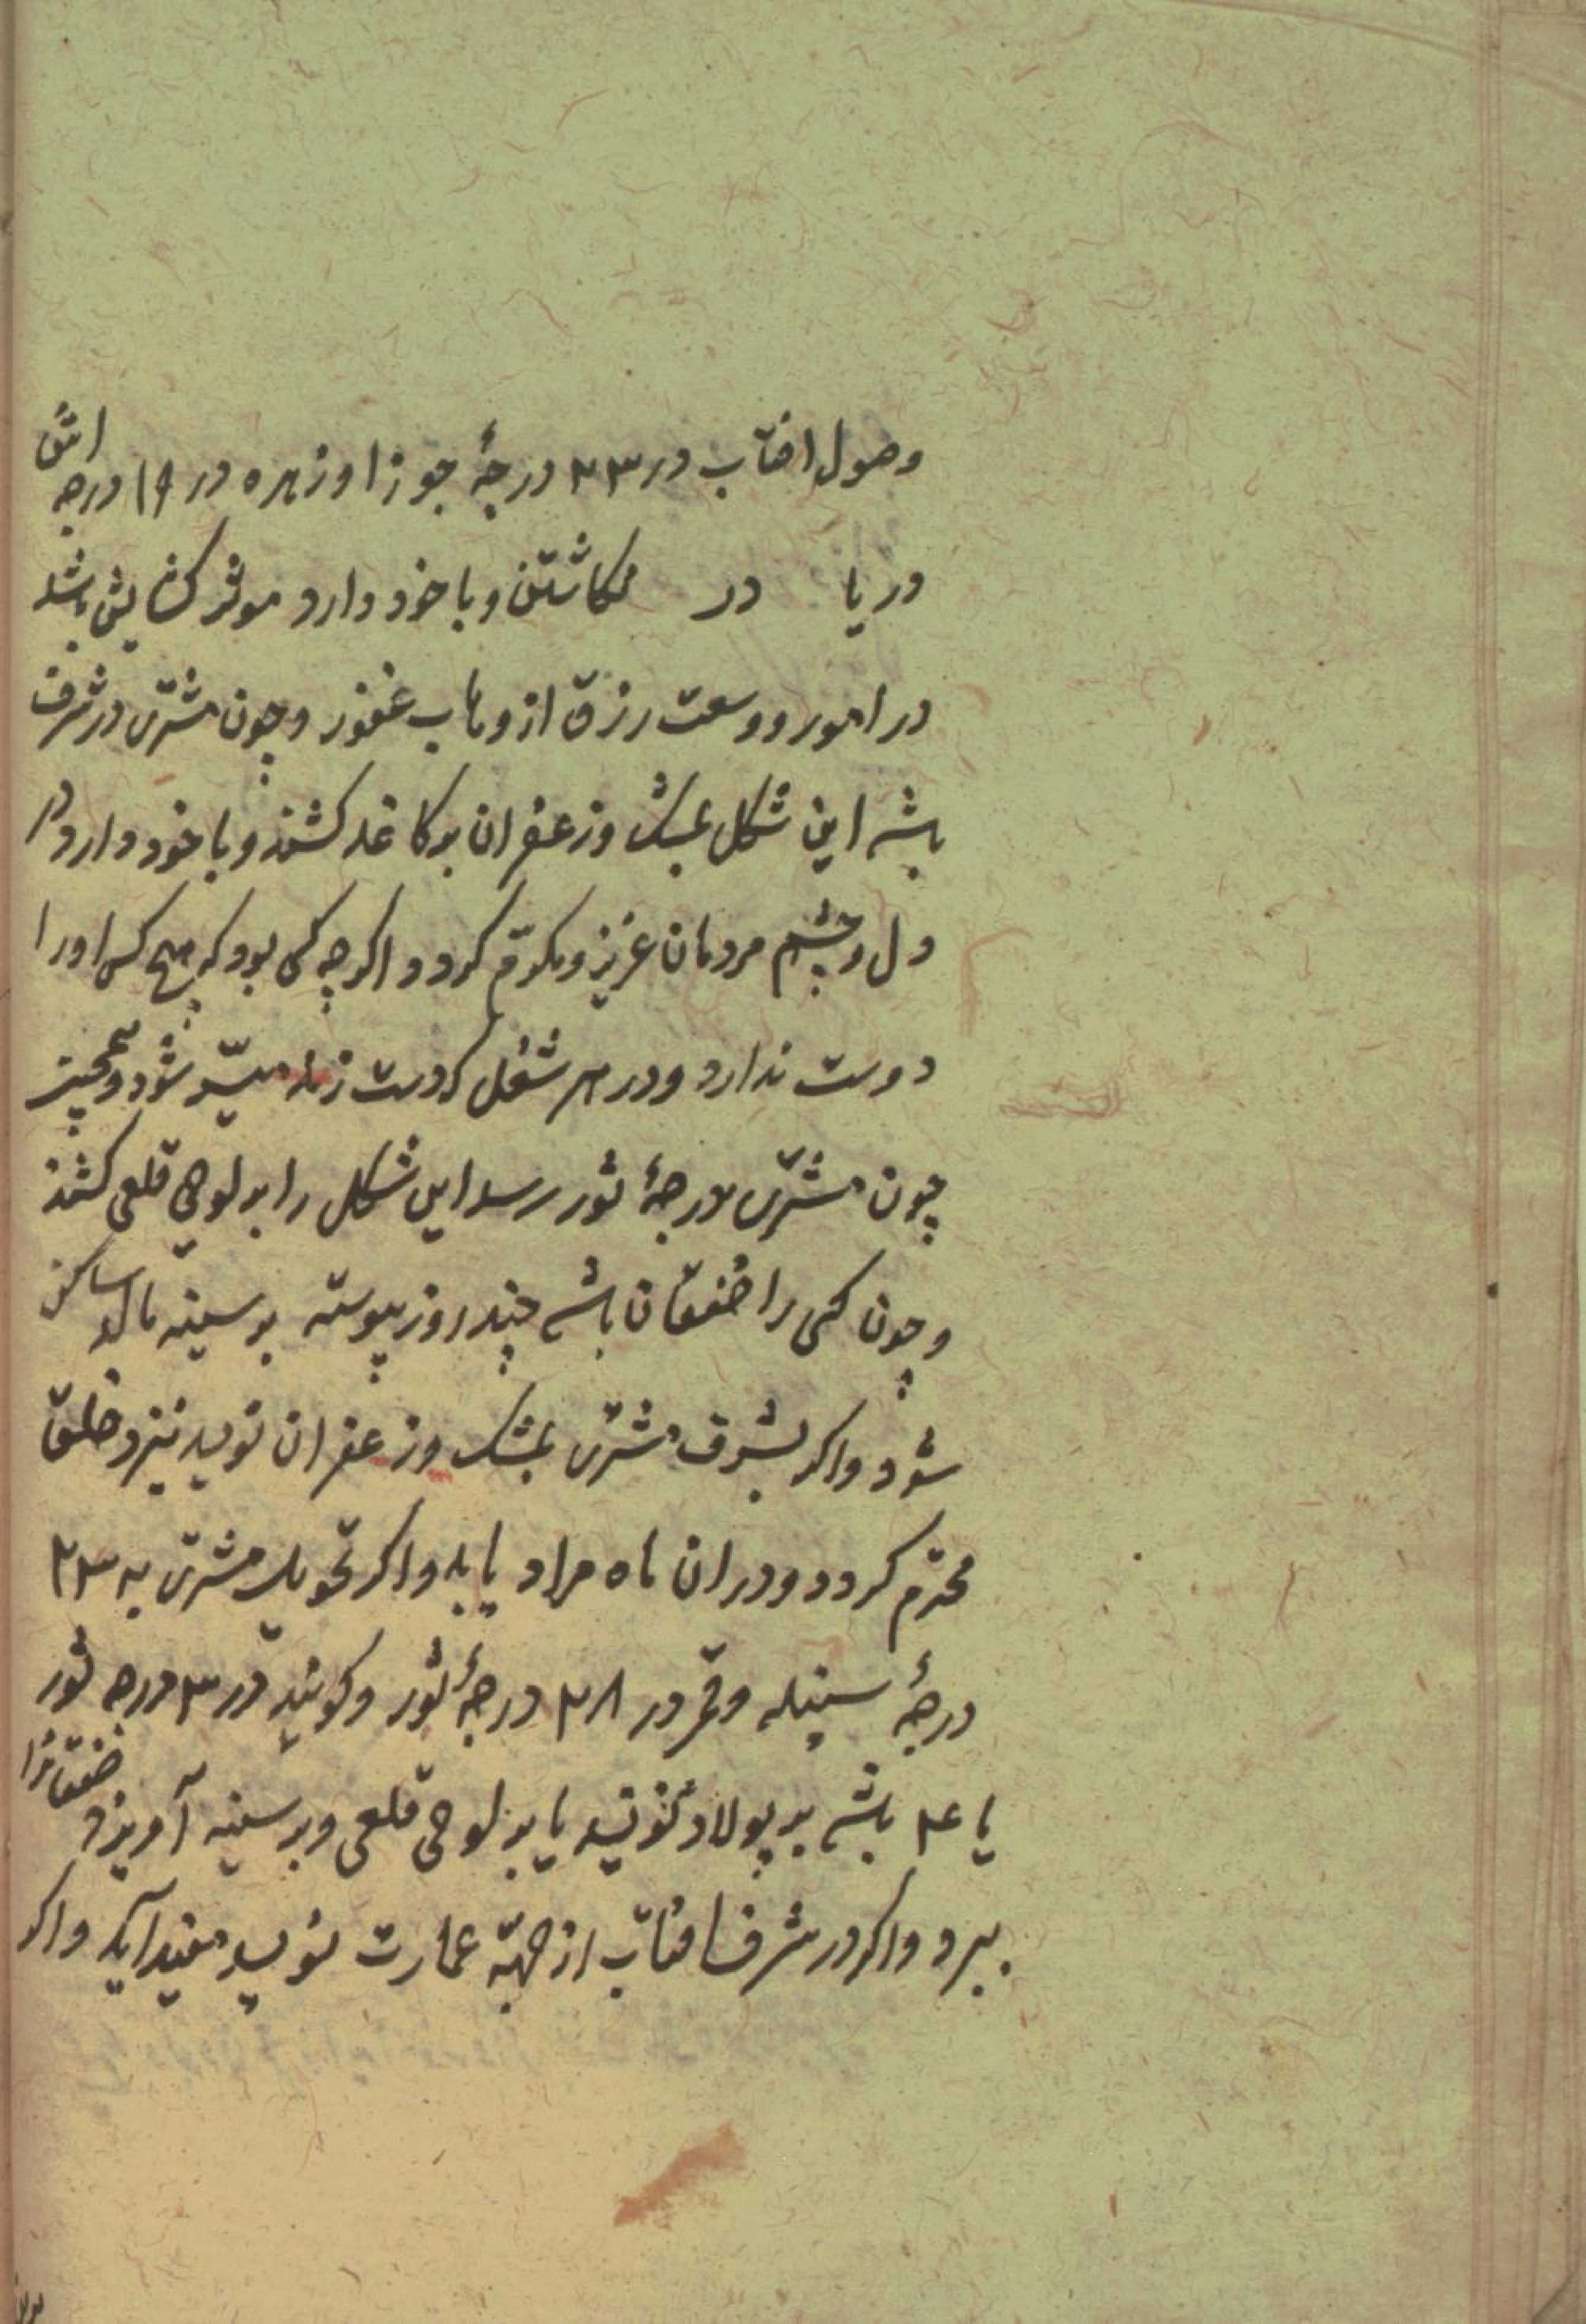 وصول افتاب در ۲۳ درجهٔ جوزا و زهره در ۱۹ درجه اش
در یا در نکاشتن و با خود دارد موثر کشایش باشد
در امور و وسعت رزق از وهاب غفور و چون مشتری در شرف
باشد این شکل بمشک و زعفران بر کاغذ کشند و با خود دارد در
دل و چشم مردمان عزیز و مکرّم کردد اکر چه کسی بود که هیچ کس او را
دوست ندارد و در هر شغل که دست زند میسّر شود و همچنین
چون مشتری بدرجهٔ ثور رسد این شکل را بر لوحی قلعی کشند
و چون کسی را خفقان باشد چند روز پیوسته بر سینه مالد ساکن
شود و اکر بشرف مشتری بمشک و زعفران نویسد نیز و خلق
محترم کردد و در ان ماه مراد یابد و اکر تحویل مشتری به ۲۳
درجهٔ سنبله و قمر در ۲۸ درجهٔ ثور و کویند در ۳ درجه ثور
یا ۲۴ باشد بر پولاد نویسد یا بر لوحی قلعی و بر سینه آویزد خفقانرا
ببرد و اکر در شرف افتاب از جهة عمارت نویسد مفید آید و اکر